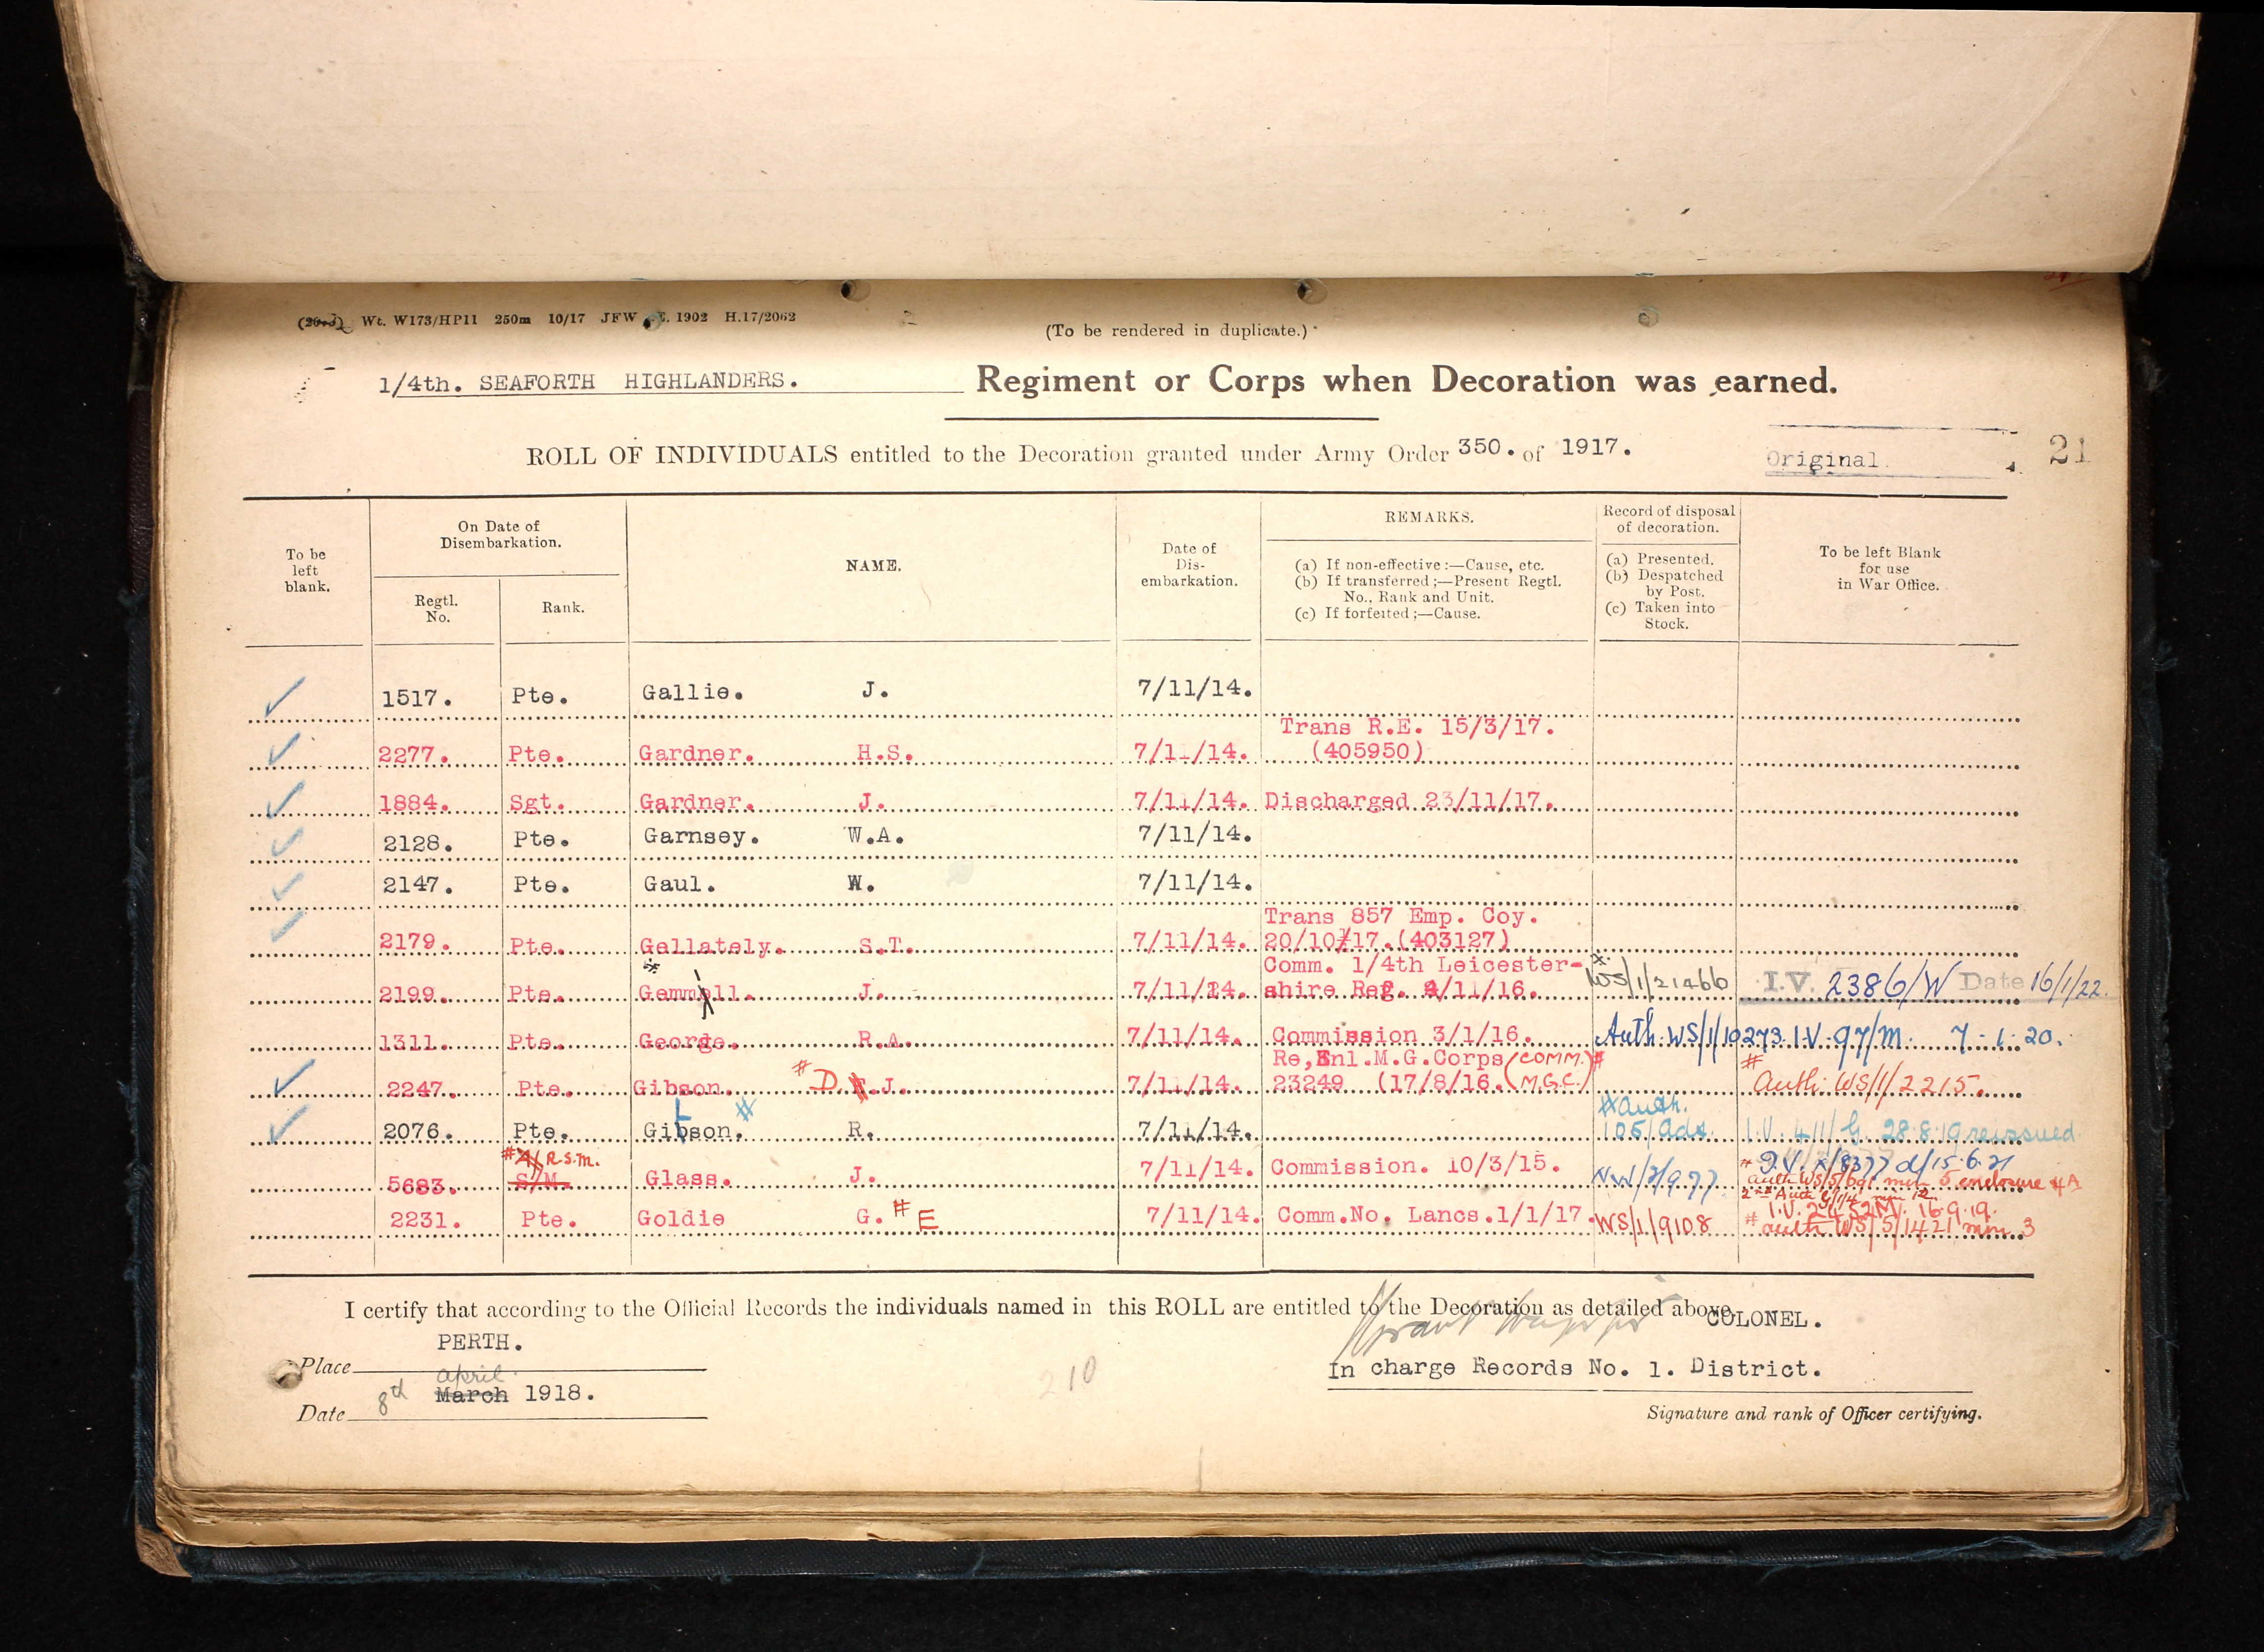 Wt. W173/HP11 250m 10/17 JFW 1902 H.17/2062
(To be rendered in duplicate.)
1/4th. SEAFORTH HIGHLANDERS. Regiment or Corps when Decoration was earned.
ROLL OF INDIVIDUALS entitled to the Decoration granted under Army Order 350. of 1917.
Original
21
To be left blank.
On Date of Disembarkation.
Regtl. No.
Rank.
NAME.
Date of Dis-embarkation.
REMARKS.
(a) If non-effective:—Cause, etc.
(b) If transferred;—Present Regtl. No., Rank and Unit.
(c) If forfeited;—Cause.
Record of disposal of decoration.
(a) Presented.
(b) Despatched by Post.
(c) Taken into Stock.
To be left Blank for use in War Office.
1517. Pte. Gallie. J. 7/11/14.
Trans R.E. 15/3/17.
2277. Pte. Gardner. H.S. 7/11/14. (405950)
1884. Sgt. Gardner. J. 7/11/14. Discharged 23/11/17.
2128. Pte. Garnsey. W.A. 7/11/14.
2147. Pte. Gaul. W. 7/11/14.
Trans 857 Emp. Coy.
2179. Pte. Gellately. S.T. 7/11/14. 20/10/17.(403127)
Comm. 1/4th Leicester-
2199. Pte. Gemmell. J. 7/11/14. shire Reg. 4/11/16. WS/1/21466 I.V. 2386/W Date 16/1/22.
1311. Pte. George. R.A. 7/11/14. Commission 3/1/16. Auth. WS/1/10273 I.V. 97/M. 7.1.20.
Re,Enl.M.G.Corps (COMM. #
2247. Pte. Gibson. # D. J. 7/11/14. 23249 (17/8/16. M.G.C.) # Auth: WS/1/2215.
# Auth.
2076. Pte. Gibson. # R. 7/11/14. 105/Adt. I.V. 411/G. 28.8.19 reissued
# A/R.S.M.
5683. S/M. Glass. J. 7/11/14. Commission. 10/3/15. # I.V. x/8377 d/15.6.21
auth WS/5/601 min 5 enclosure 4A
2nd Auth
I.V. 2452M. 16.9.19.
2231. Pte. Goldie G. # E 7/11/14. Comm.No. Lancs.1/1/17. WS/1/9108 # auth WS/5/1421 min 3
I certify that according to the Official Records the individuals named in this ROLL are entitled to the Decoration as detailed above.
COLONEL.
Place PERTH.
In charge Records No. 1. District.
april
Date 8th March 1918.
210
Signature and rank of Officer certifying.